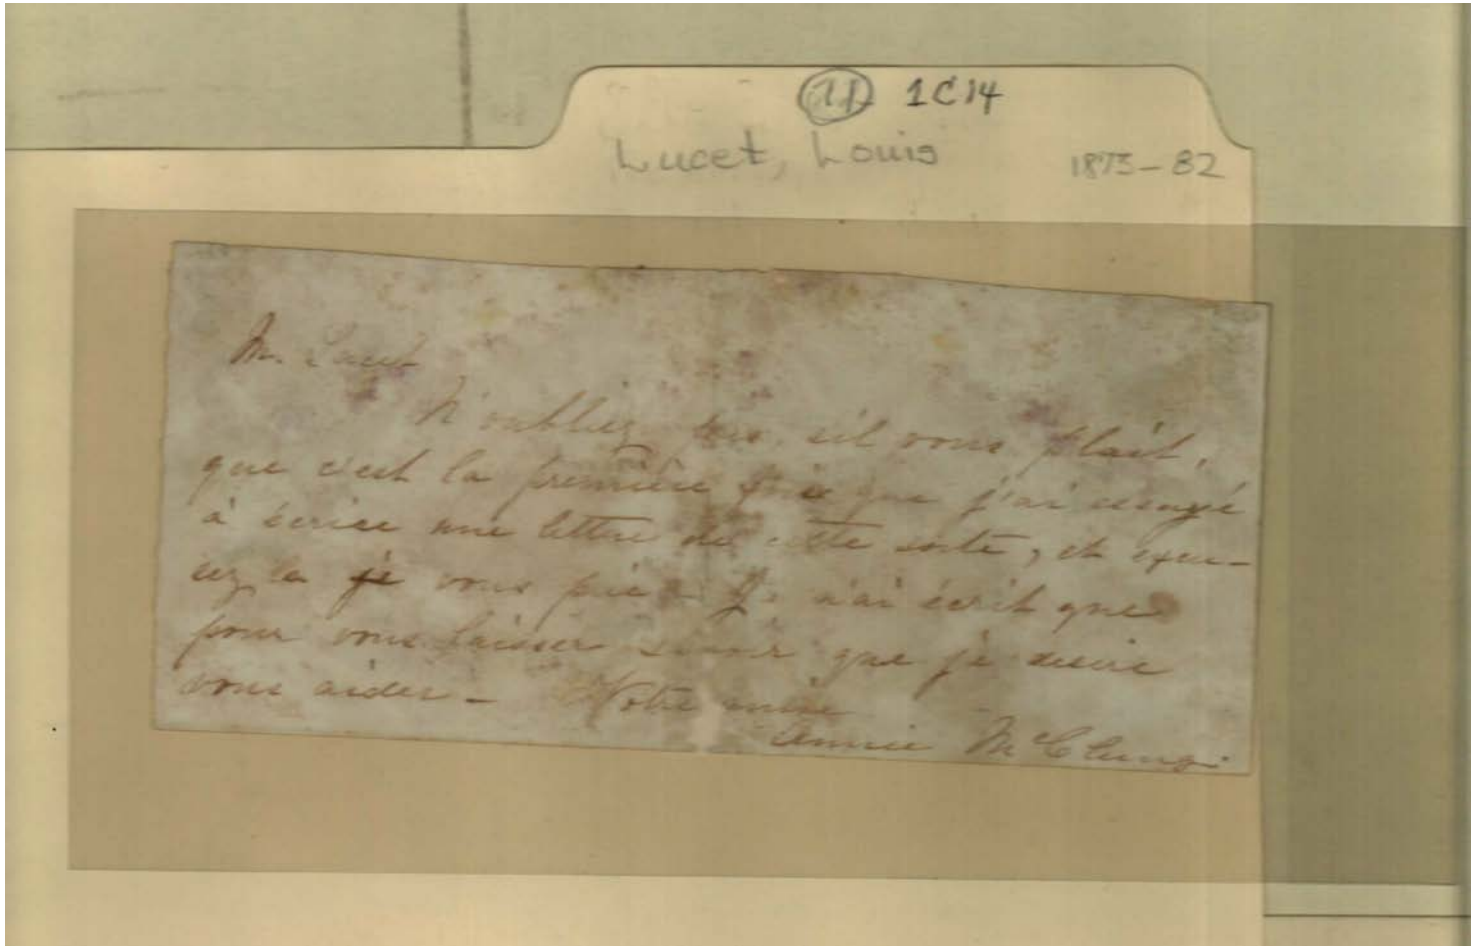 11 1C14
Lucet, Louis 1873-82
M. Lucet
N'oubliez pas, s'il vous plait,
que c'est la première fois que j'ai essayé
à écrire une lettre de cette sorte, et excu-
sez la je vous prie - Je n'ai écrit que
pour vous laisser savoir que je désire
vous aider - Votre amie
Annie McClung.